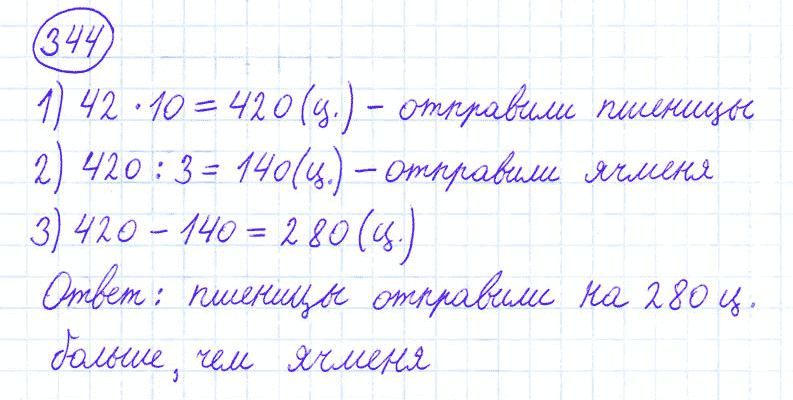 344
1) 42 · 10 = 420 (ц.) – отправили пшеницы
2) 420 : 3 = 140 (ц.) – отправили ячменя
3) 420 – 140 = 280 (ц.)
Ответ: пшеницы отправили на 280 ц.
больше, чем ячменя